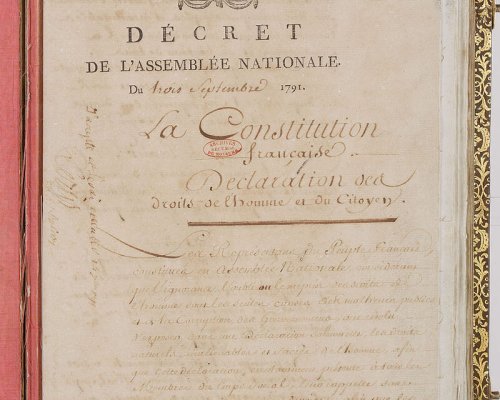 DÉCRET
DE L'ASSEMBLÉE NATIONALE.
Du trois Septembre 1791.
La Constitution
française.
Déclaration des
droits de l'homme et du Citoyen.
Les Représentans du Peuple Français
constitués en Assemblée Nationale, considérant
que l'ignorance, l'oubli ou le mépris des droits de
l'homme sont les seules causes des malheurs publics
et de la Corruption des Gouvernemens, ont résolu
d'exposer dans une Déclaration solennelle, les droits
naturels, inaliénables et sacrés de l'homme, afin
que cette déclaration, constamment présente à tous les
Membres du corps social, leur rappelle sans